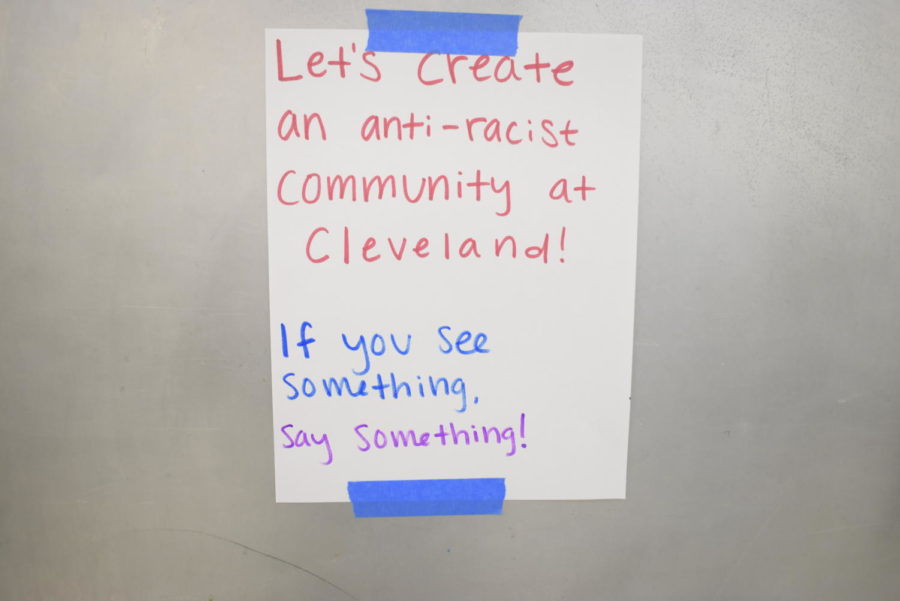 Let's create
an anti-racist
community at
Cleveland!
If you see
something,
say something!